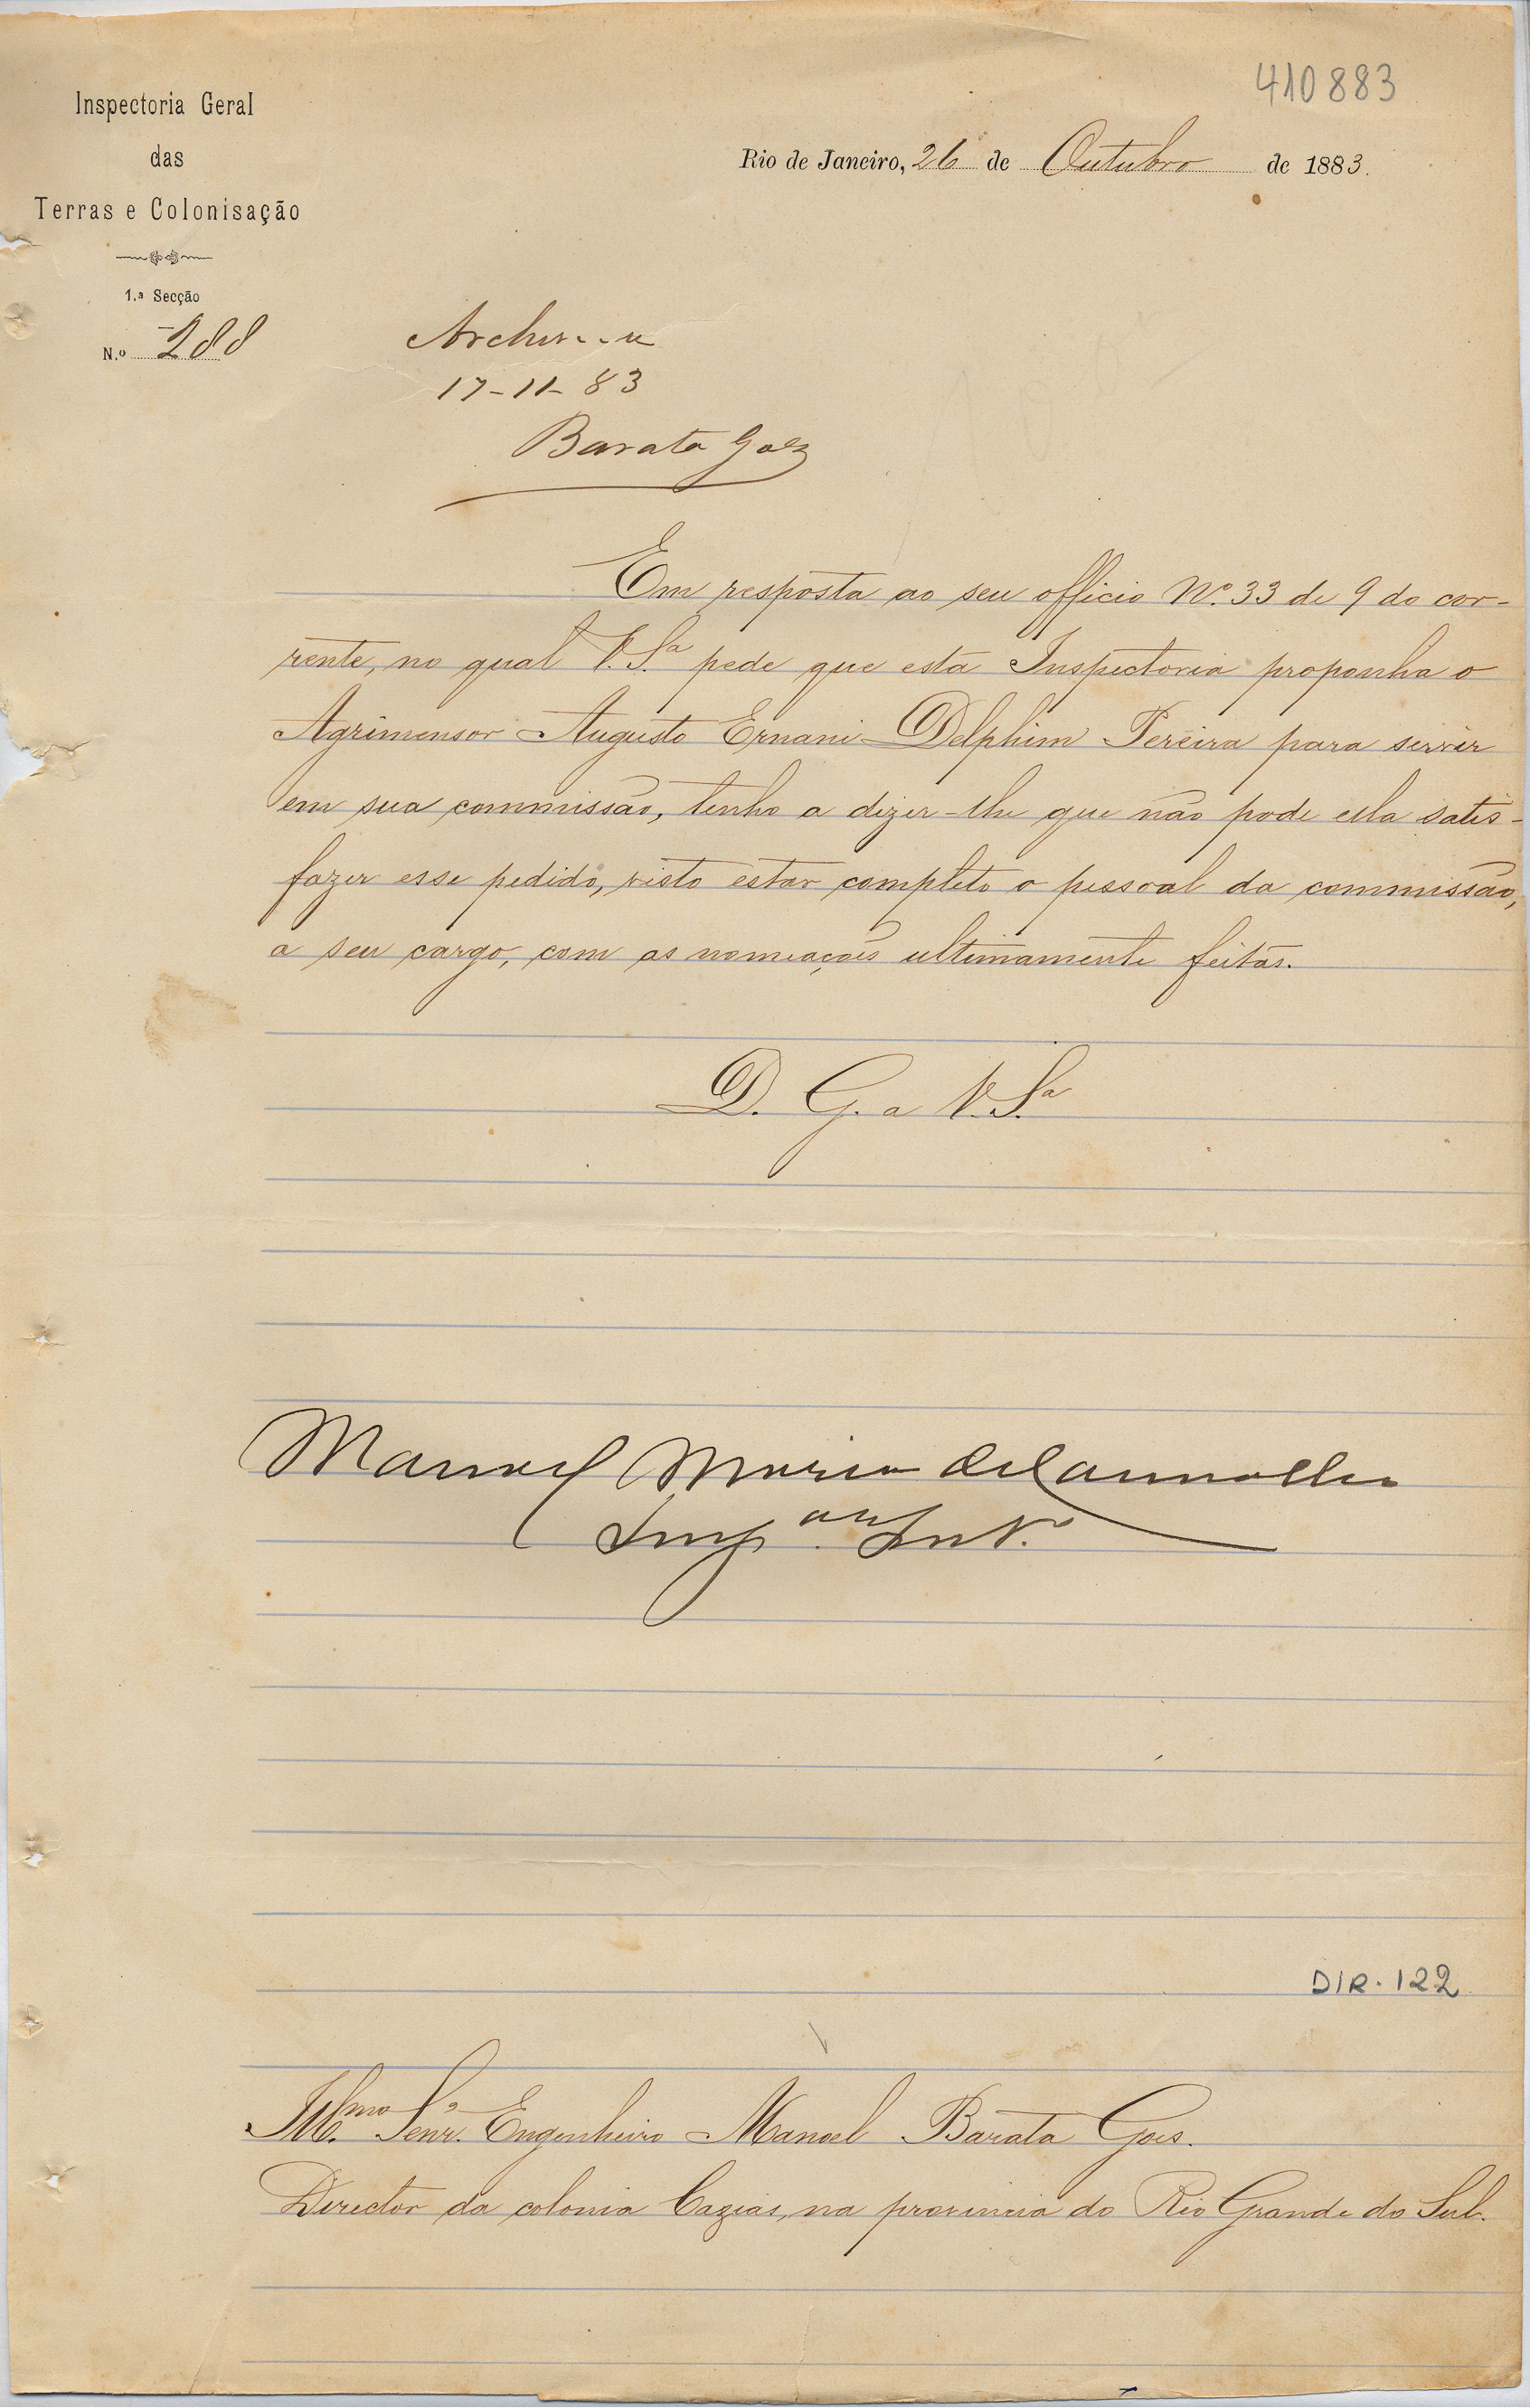 410883
Inspectoria Geral
das
Terras e Colonisação
1.ª Secção
N.º 288
Rio de Janeiro, 26 de Outubro de 1883.
Archive-se
17-11-83
Barata Goes
Em resposta ao seu officio Nº. 33 de 9 do cor-
rente, no qual V. S.ª pede que esta Inspectoria proponha o
Agrimensor Augusto Ernani Delphim Pereira para servir
em sua commissão, tenho a dizer-lhe que não pode ella satis-
fazer esse pedido, visto estar completo o pessoal da commissão,
a seu cargo, com as nomeações ultimamente feitas.
D. G. a V. S.ª
Manoel Maria de Carvalho
Insp.ºr Int.º
DIR. 122
Ill.mo Senr. Engenheiro Manoel Barata Goes.
Director da colonia Caxias, na provincia do Rio Grande do Sul.